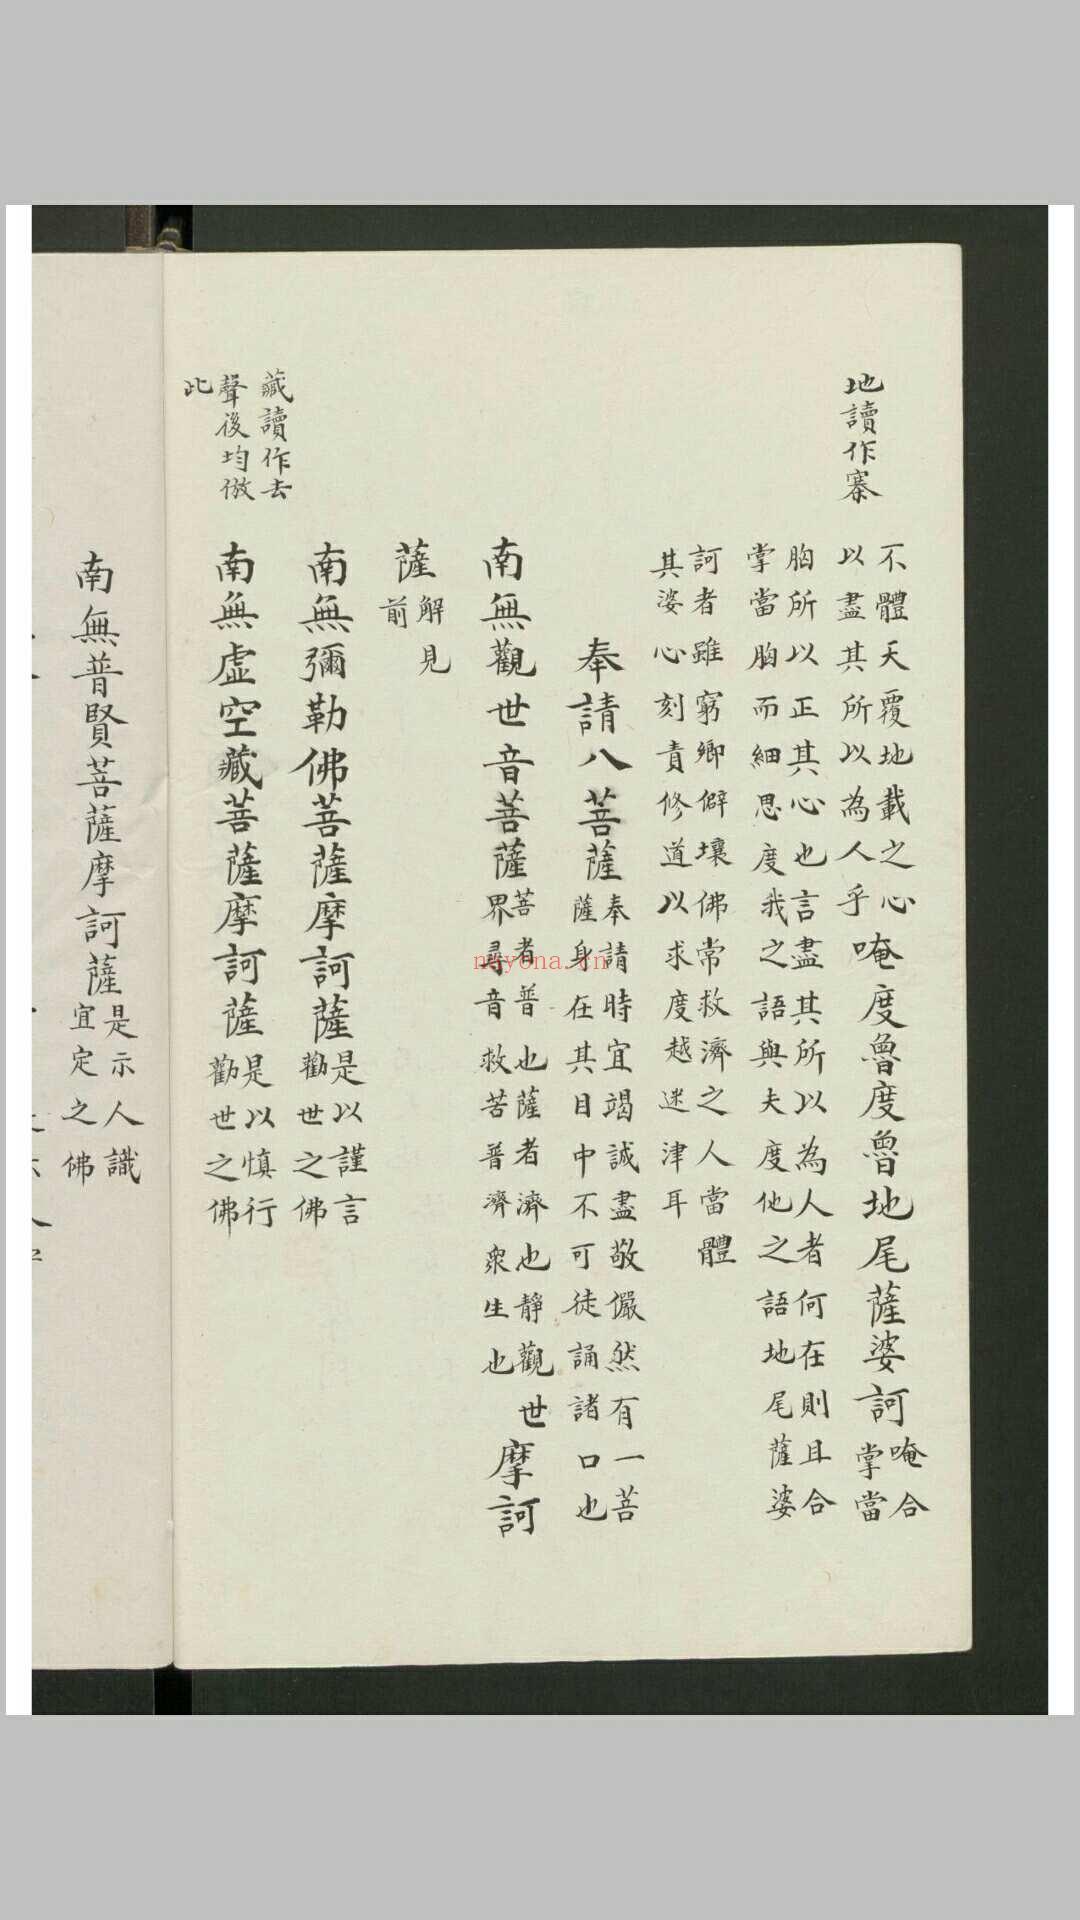 地讀作寨
不體天覆地載之心
以盡其所以為人乎
唵度魯度魯地尾薩婆訶
唵合
掌當
胸所以正其心也言盡其所以為人者何在則且合
掌當胸而細思度我之語與夫度他之語地尾薩婆
訶者雖窮鄉僻壤佛常救濟之人當體
其婆心刻責修道以求度越迷津耳
奉請八菩薩
奉請時宜竭誠盡敬儼然有一菩
薩身在其目中不可徒誦諸口也
南無觀世音菩薩
菩者普也薩者濟也靜觀世
界尋音救苦普濟眾生也
摩訶
薩
解見
前
南無彌勒佛菩薩摩訶薩
是以謹言
勸世之佛
藏讀作去
聲後均倣
此
南無虛空藏菩薩摩訶薩
是以慎行
勸世之佛
南無普賢菩薩摩訶薩
是示人識
宜定之佛
nayona.cn